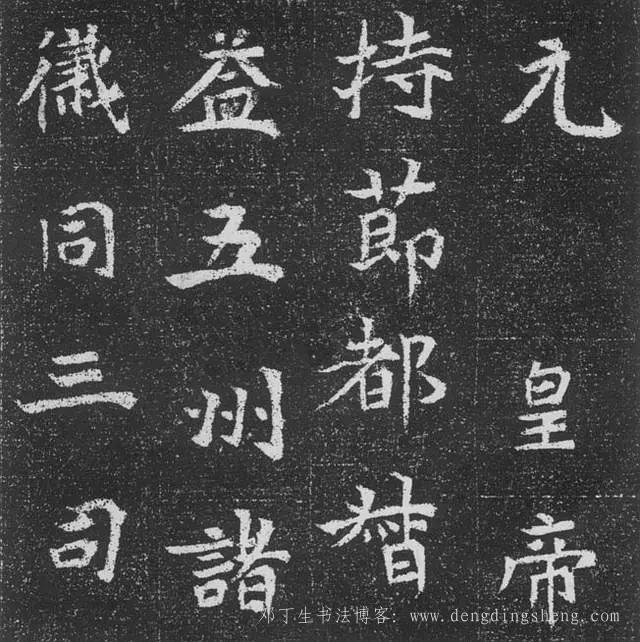 元 皇帝
持節都督
益五州諸
儀同三司
邓丁生书法博客: www.dengdingsheng.com